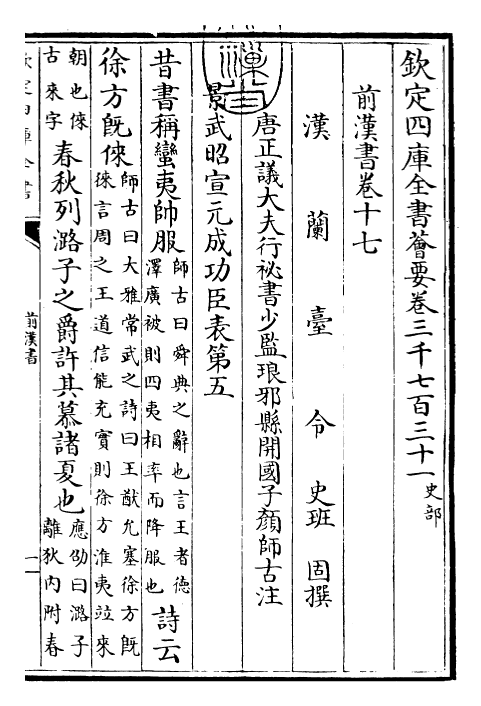 欽定四庫全書薈要卷三千七百三十一史部
前漢書卷十七
漢蘭臺令史班固撰
唐正議大夫行祕書少監琅邪縣開國子顏師古注
景武昭宣元成功臣表第五
昔書稱蠻夷帥服師古曰舜典之辭也言王者德澤廣被則四夷相率而降服也詩云
徐方既倈師古曰大雅常武之詩曰王猷允塞徐方既倈言周之王道信能充實則徐方淮夷竝來
朝也倈古來字春秋列潞子之爵許其慕諸夏也應劭曰潞子離狄內附春
欽定四庫全書
前漢書
一